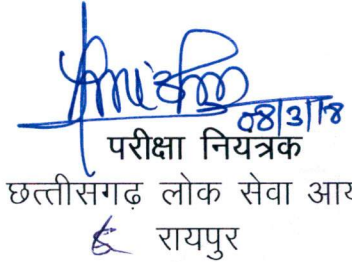 08/3/18
परीक्षा नियत्रक
छत्तीसगढ़ लोक सेवा आय
रायपुर